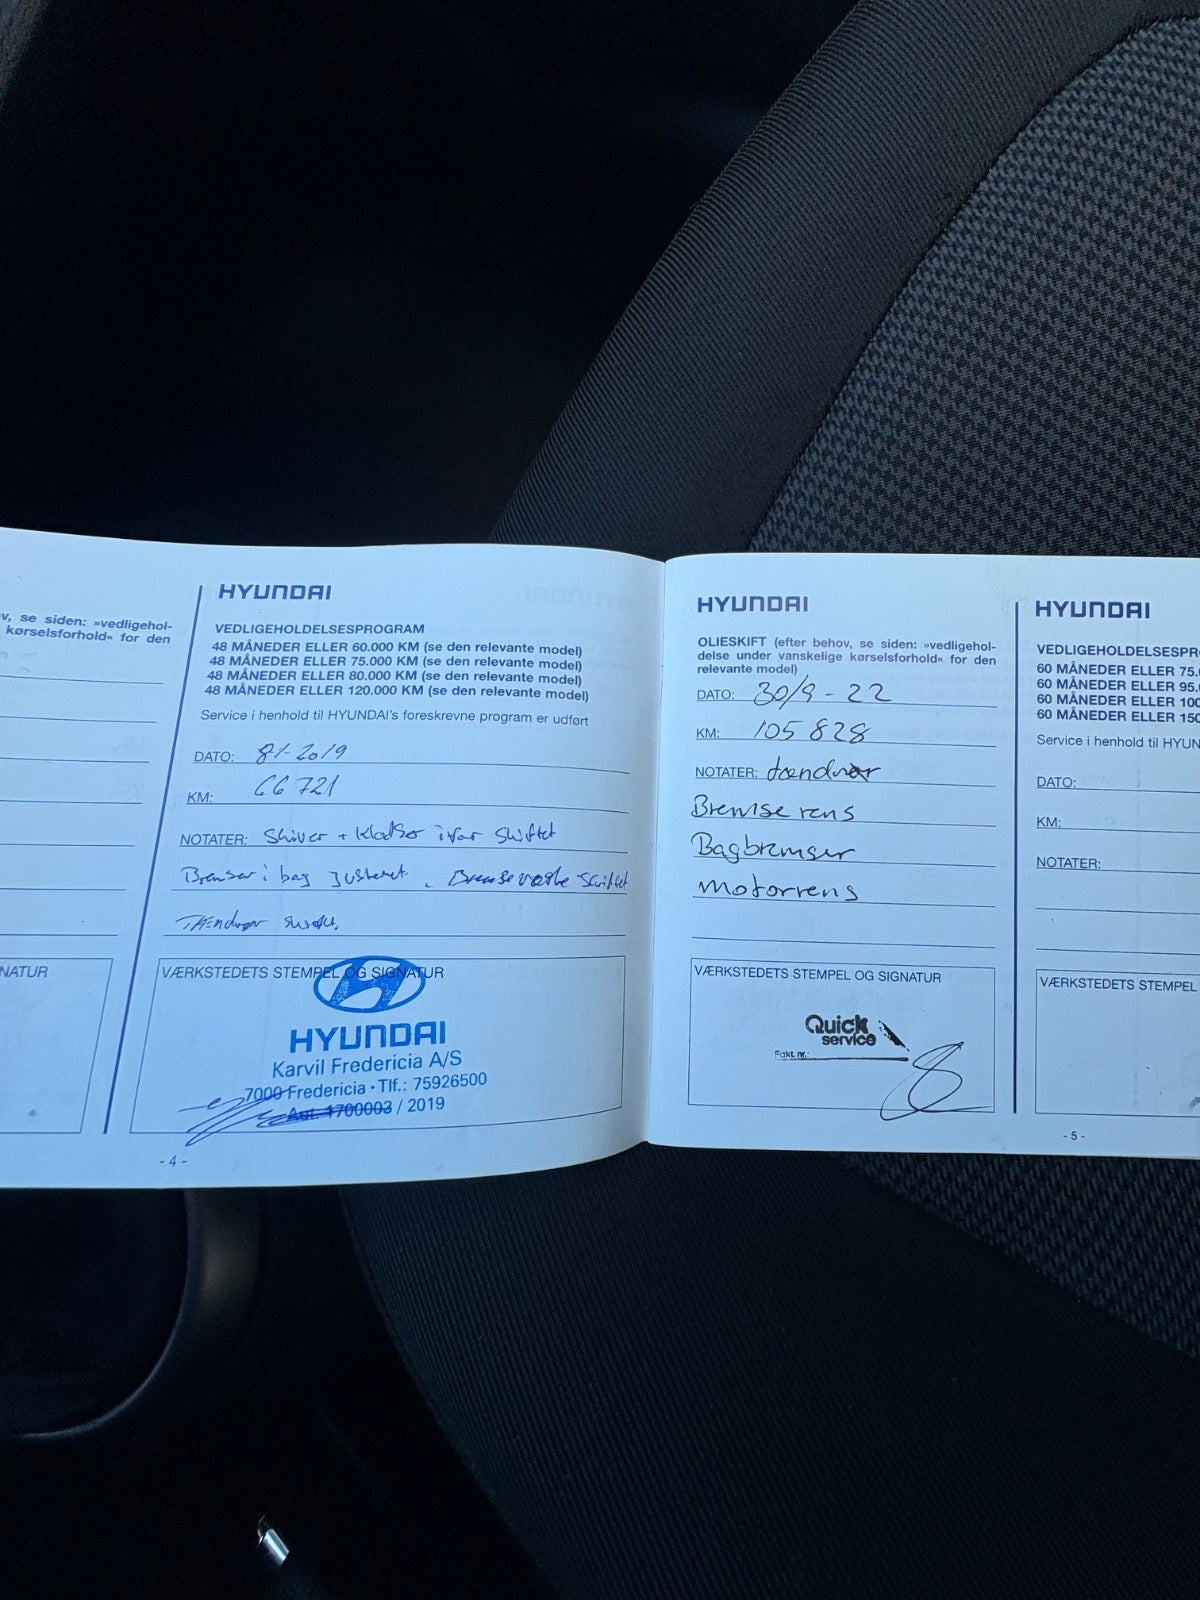 v, se siden: »vedligehol-
kørselsforhold« for den
NATUR
HYUNDAI
VEDLIGEHOLDELSESPROGRAM
48 MÅNEDER ELLER 60.000 KM (se den relevante model)
48 MÅNEDER ELLER 75.000 KM (se den relevante model)
48 MÅNEDER ELLER 80.000 KM (se den relevante model)
48 MÅNEDER ELLER 120.000 KM (se den relevante model)
Service i henhold til HYUNDAI's foreskrevne program er udført
DATO: 8/1-2019
KM: 66 721
NOTATER: Skiver + Klodser ifor skiftet
Bremser i bag justeret. Bremsevæske skiftet
Tændrør skiftet.
VÆRKSTEDETS STEMPEL OG SIGNATUR
HYUNDAI
Karvil Fredericia A/S
7000 Fredericia • Tlf.: 75926500
Aut. 1700003 / 2019
- 4 -
HYUNDAI
OLIESKIFT (efter behov, se siden: »vedligehol-
delse under vanskelige kørselsforhold« for den
relevante model)
DATO: 30/9-22
KM: 105 828
NOTATER: tændrør
Bremse rens
Bagbremser
motorrens
VÆRKSTEDETS STEMPEL OG SIGNATUR
Quick
service
Fakt. nr.:
HYUNDAI
VEDLIGEHOLDELSESPRO
60 MÅNEDER ELLER 75.
60 MÅNEDER ELLER 95.
60 MÅNEDER ELLER 100
60 MÅNEDER ELLER 150
Service i henhold til HYUN
DATO:
KM:
NOTATER:
VÆRKSTEDETS STEMPEL
- 5 -